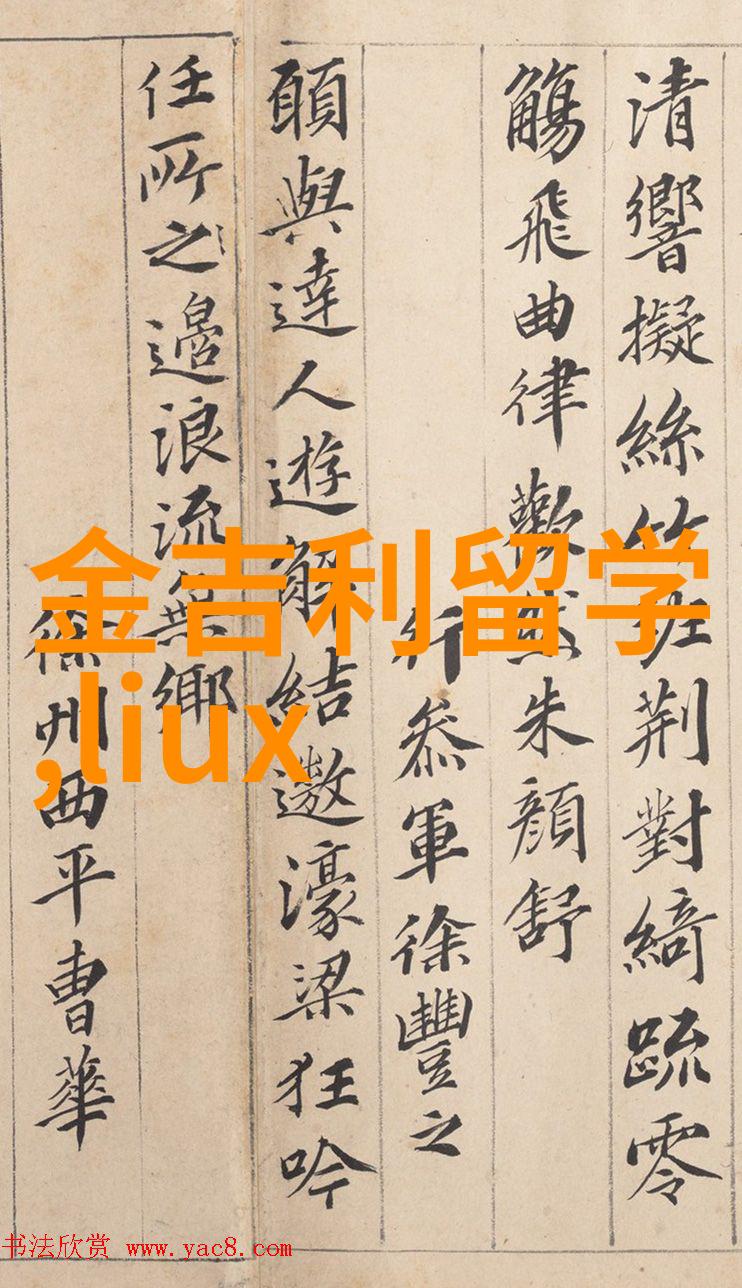 清響擬絲竹班荊對綺疏零
觴飛曲律歡然朱顏舒
行叅軍徐豐之
願與達人遊解結遨濠梁狂吟
任所之邉浪流無鄉
徐州西平曹華
金吉利留学
,liux
书法欣赏 www.yac8.com